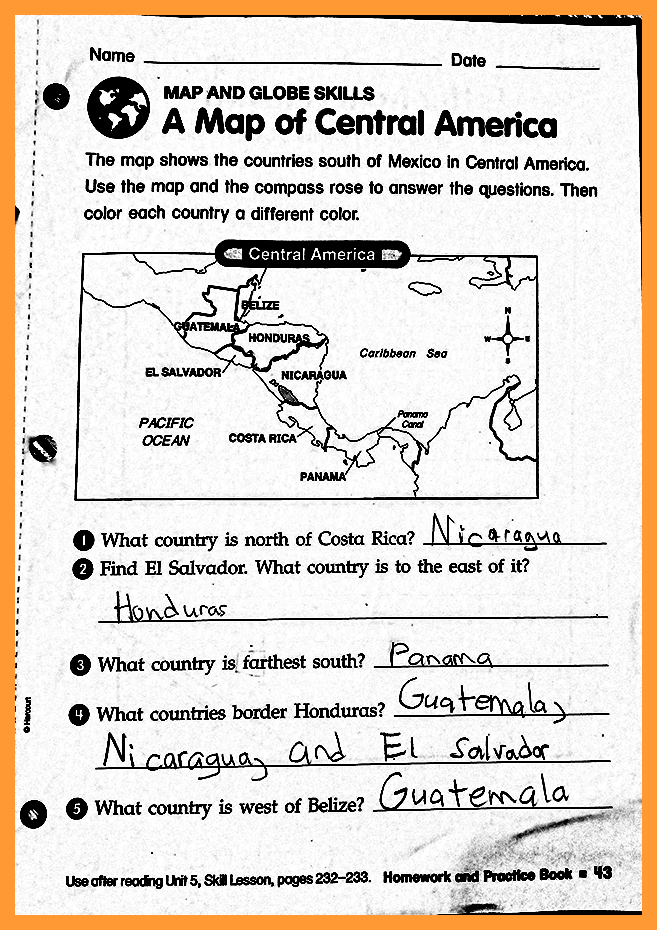 Name Date
MAP AND GLOBE SKILLS
A Map of Central America
The map shows the countries south of Mexico in Central America.
Use the map and the compass rose to answer the questions. Then
color each country a different color.
Central America
BELIZE
GUATEMALA
HONDURAS
N
W E
S
Caribbean Sea
EL SALVADOR
NICARAGUA
PACIFIC
OCEAN
Panama
Canal
COSTA RICA
PANAMA
1 What country is north of Costa Rica? Nicaragua
2 Find El Salvador. What country is to the east of it?
Honduras
3 What country is farthest south? Panama
4 What countries border Honduras? Guatemala,
Nicaragua, and El Salvador
5 What country is west of Belize? Guatemala
© Harcourt
Use after reading Unit 5, Skill Lesson, pages 232–233. Homework and Practice Book ▪ 43